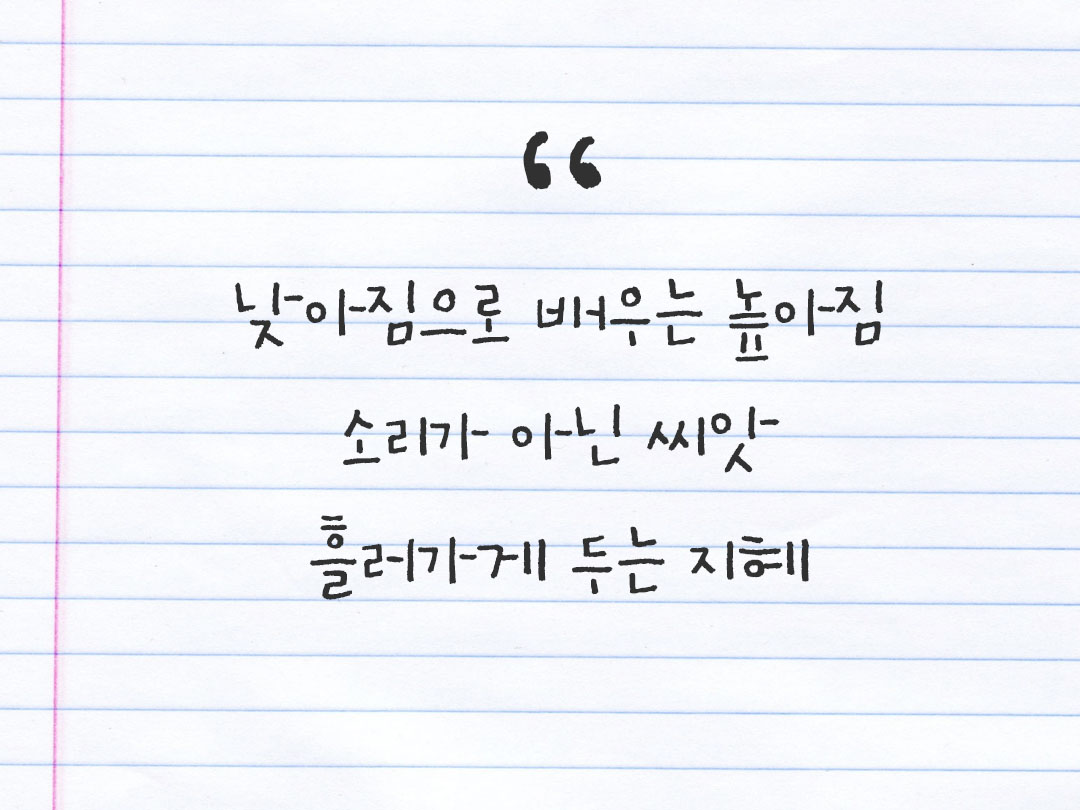 “
낮아짐으로 배우는 높아짐
소리가 아닌 씨앗
흘러가게 두는 지혜